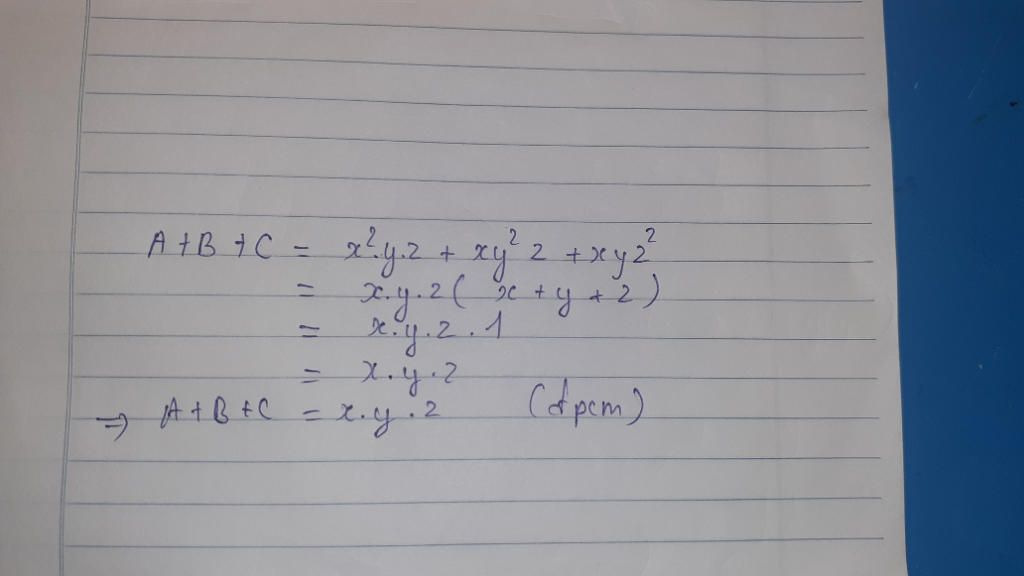 A+B+C = x².y.z + xy²z + xyz²
= x.y.z( x + y + z )
= x.y.z.1
= x.y.z
⇒ A+B+C = x.y.z (đpcm)